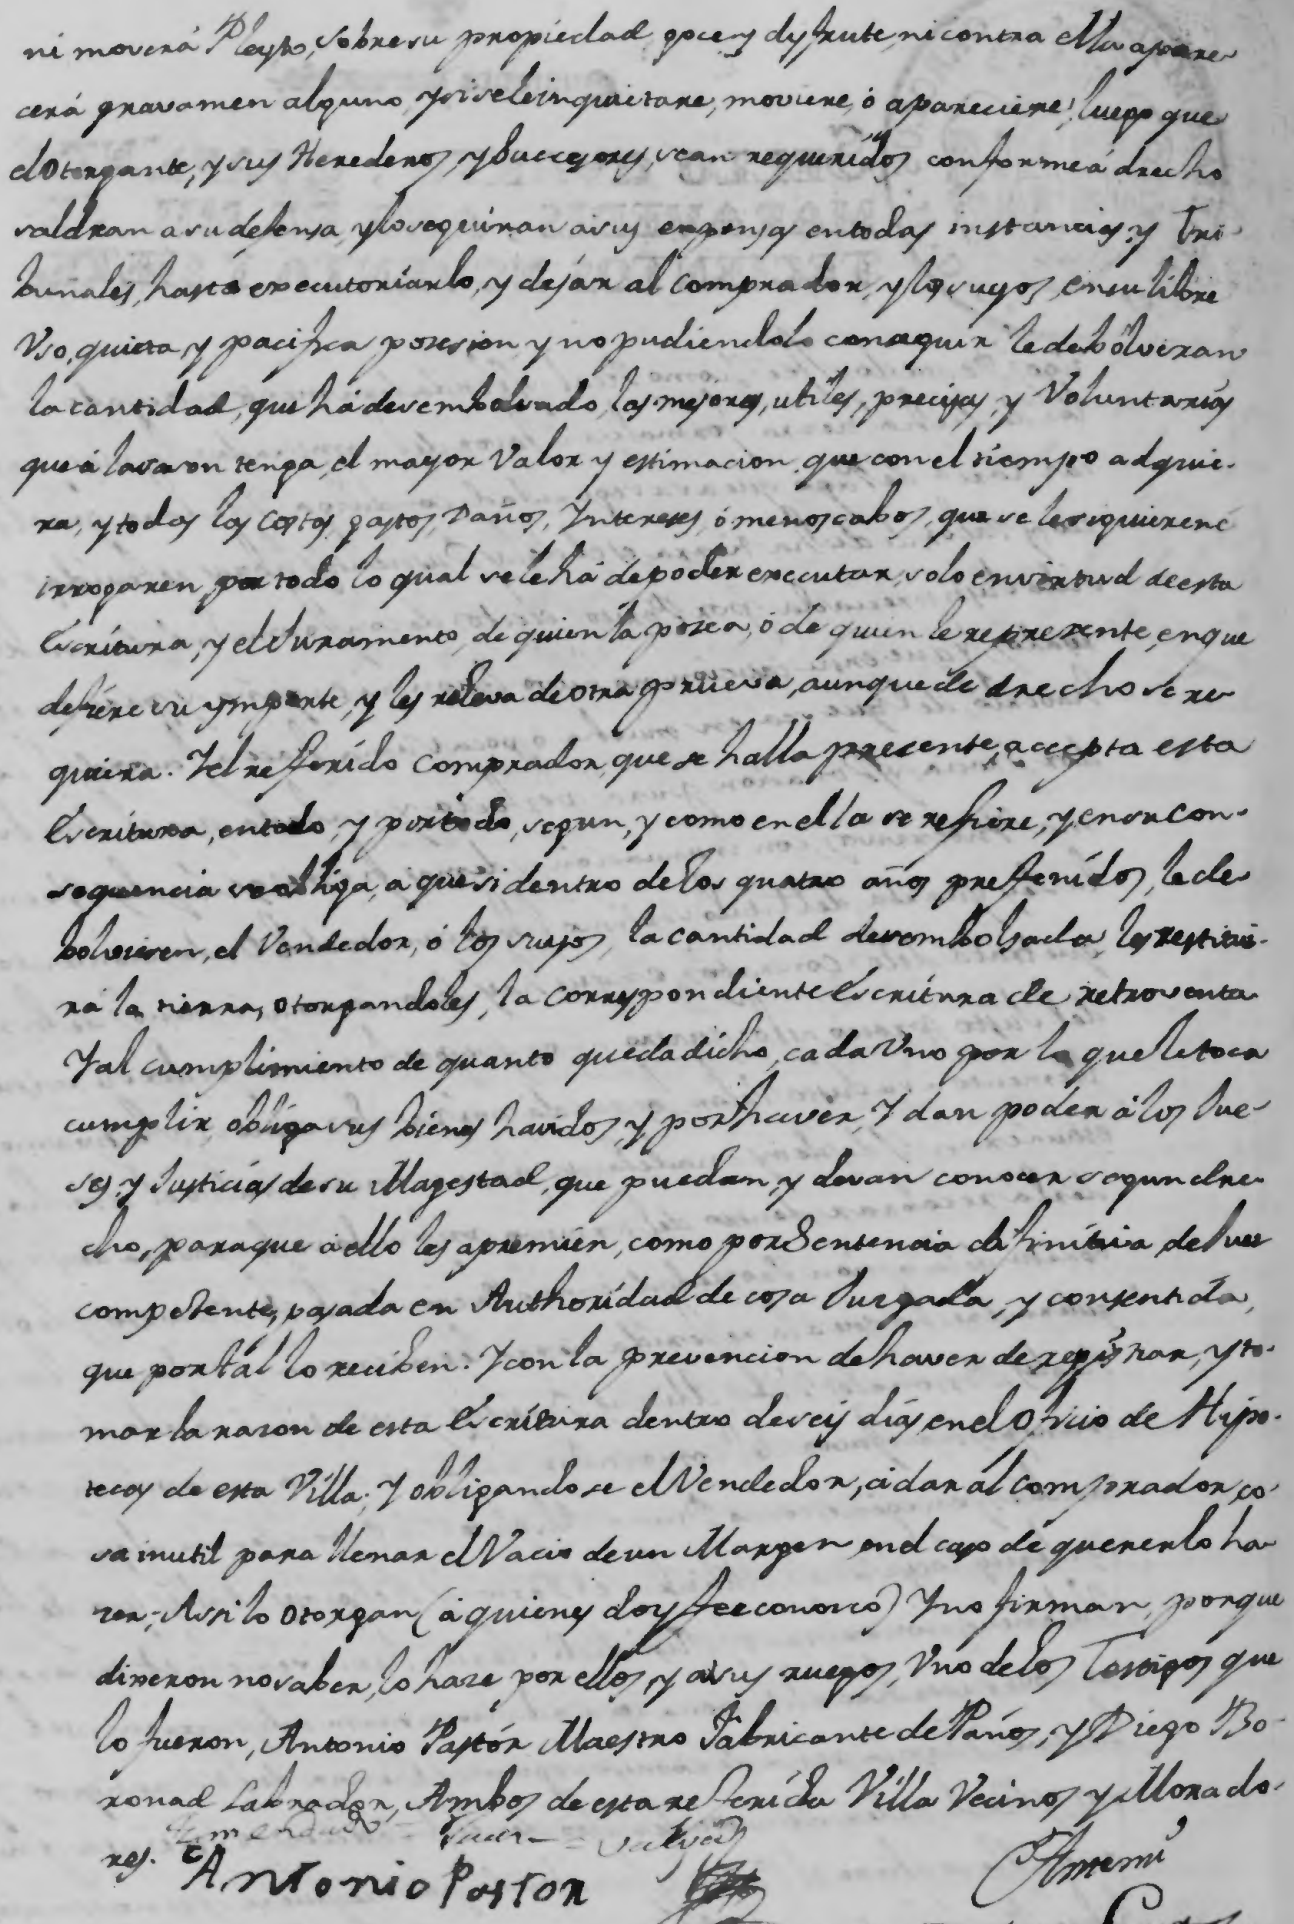 ni moverá Pleyto, sobre su propiedad, goce, y disfrute, ni contra ella apare-
cerá gravamen alguno, y si se le inquietare, moviere, ó apareciere, luego que
el Otorgante, y sus Herederos, y Succesores, sean requeridos conforme á drecho
saldran a su defensa, y lo seguiran a sus expensas en todas instancias, y Tri-
bunales, hasta executoriarlo, y dejár al Comprador, y los suyos, en su libre
Uso, quieta y pacifica posesion y no pudiendolo conseguir le debolveran
la cantidad, que há desembolsado, las mejoras, utiles, precisas, y Voluntarias
que á la sazon tenga, el mayor Valor y estimacion, que con el tiempo adquie-
ra, y todas las Costas, gastos, Daños, Intereses, ó menoscabos, que se le siguieren é
irrogaren, por todo lo qual se le há de poder executar, solo en virtud de esta
Escritura, y el Juramento, de quien la posea, ó de quien le represente, en que
defiére su ymporte, y les releva de otra prueva, aunque de drecho se re-
quiera. Y el refferido Comprador, que se halla presente, accepta esta
Escritura, en todo, y por todo, segun, y como en ella se refiere, y en su con-
sequencia se obliga, a que si dentro de los quatro años prefferidos, le de-
bolviesen, el Vendedor, ó los suyos, la cantidad desembolsada, les restitui-
rá la tierra, otorgandoles, la Correspondiente Escritura de retroventa
Y al cumplimiento de quanto queda dicho, cada Uno por lo que le toca
cumplir, obliga sus bienes havidos, y por haver, Y dan poder á los Jue-
ses, y Justicias de su Magestad, que puedan, y devan conocer segun dre-
cho, para que a ello les apremien, como por Sentencia difinitiva, de Jues
competente, pasada en Authoridad de cosa Jusgada, y consentida,
que por tál lo reciben. Y con la prevencion de haver de registrar, y to-
mar la razon de esta Escritura dentro de seis dias en el Oficio de Hipo-
tecas de esta Villa; Y obligandose el Vendedor, á dar al comprador, co-
sa inutil para llenar el Vacio de un Margen, en el caso de quererlo ha-
zer; Assi lo otorgan (á quienes doy fee conosco) Y no firman, porque
dixeron no saber, lo haze por ellos, y a sus ruegos, Uno de los Testigos que
lo fueron, Antonio Pastór Maestro Fabricante de Paños, y Diego Bo-
ronad Labrador, Ambos de esta refferida Villa Vecinos y Morado-
res.
Antonio Pastor
Antemi